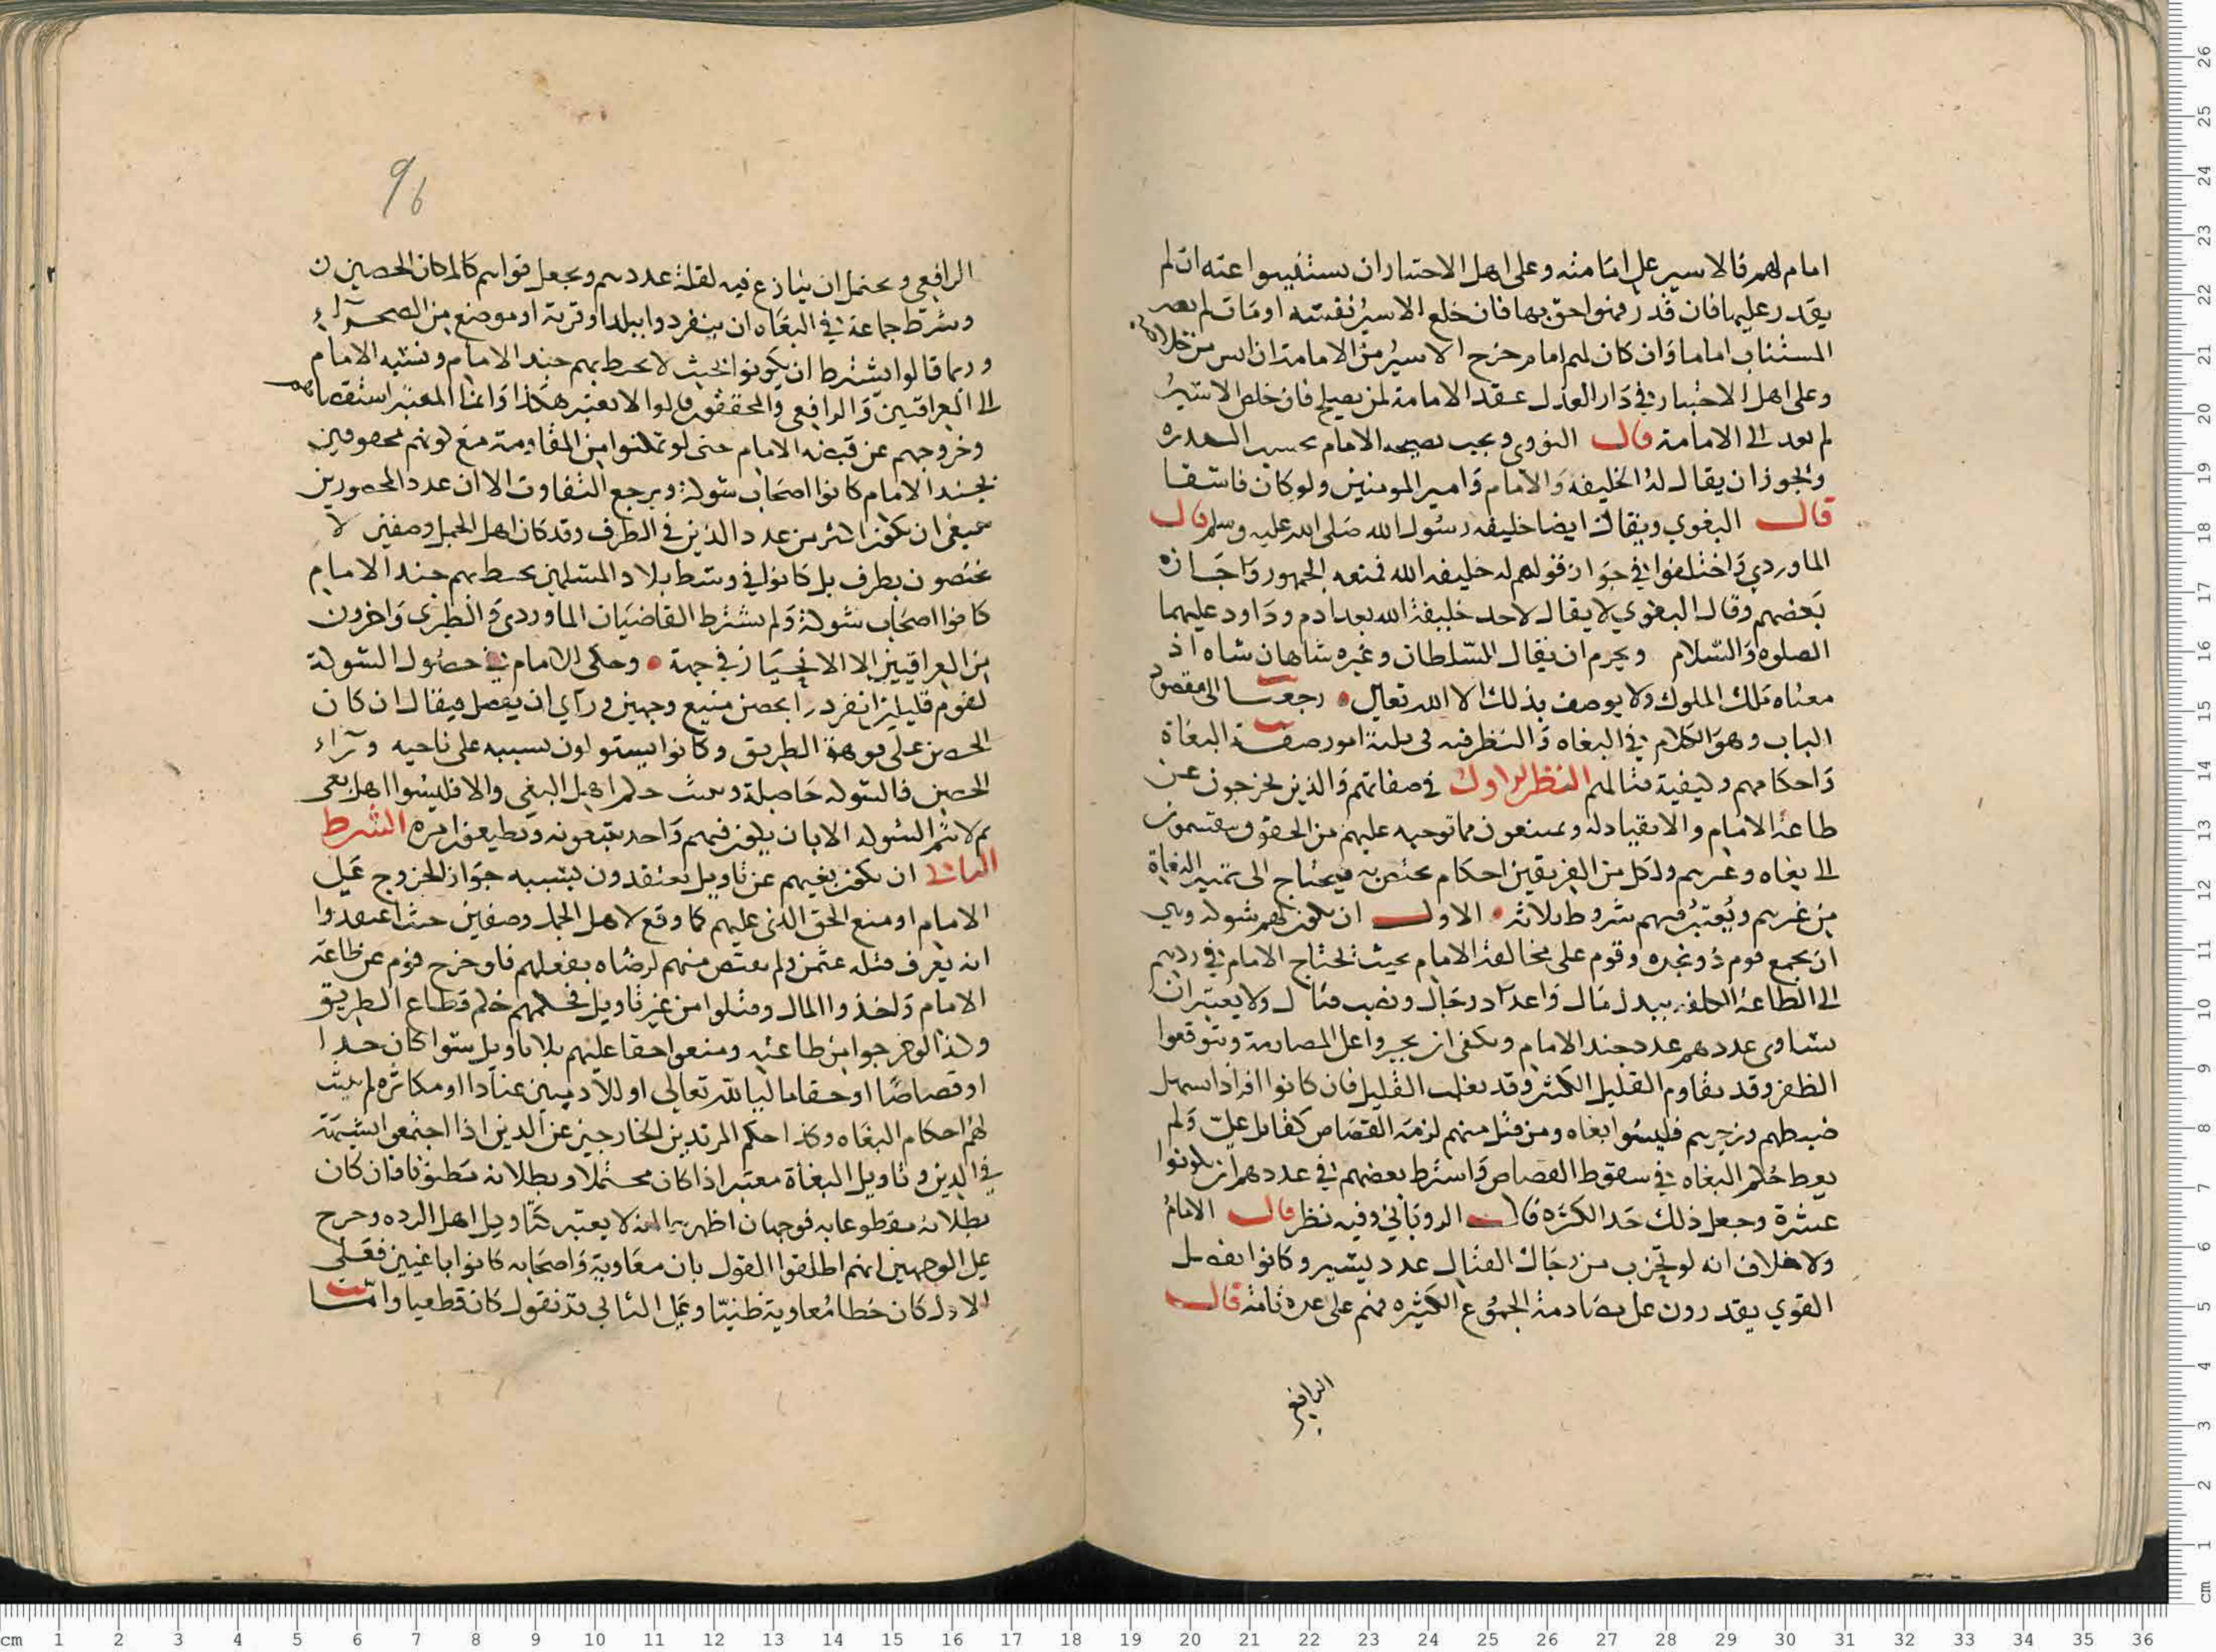 امام لهم فالاسير على امامته وعلى اهل الاختيار ان يستنيبوا عنه ان لم
يقدر عليها فان قدر فهو احق بها فان خلع الاسير نفسه او مات لم يصر
المستناب اماما وان كان لهم امام خرج الاسير من الامامة ان ايس من خلاصه
وعلى اهل الاختيار في دار العدل عقد الامامة لمن يصلح فان خلص الاسير
لم يعد الى الامامة قال النووي ويجب نصيحه الامام بحسب القدره
ويجوز ان يقال له الخليفه والامام وامير المومنين ولو كان فاسقا
قال البغوي ويقال ايضا خليفه رسول الله صلى الله عليه وسلم قال
الماوردي واختلفوا في جواز قولهم له خليفه الله فمنعه الجمهور واجازه
بعضهم وقال البغوي لا يقال لاحد خليفة الله بعد ادم وداود عليهما
الصلوه والسلام ويحرم ان يقال للسلطان وغيره شاهان شاه اذ
معناه ملك الملوك ولا يوصف بذلك الا الله تعالى رجعنا الى مقصود
الباب وهو الكلام في البغاه والنظر فيه في ثلثة امور صفة البغاة
واحكامهم وكيفية قتالهم النظر الاول في صفاتهم والذين يخرجون عن
طاعة الامام والانقياد له ويمتنعون مما توجبه عليهم من الحقوق ينقسمون
الى بغاه وغيرهم ولكل من الفريقين احكام تختص به فيحتاج الى تمييز البغاة
من غيرهم ويعتبر فيهم شروط ثلاثه الاول ان يكون لهم شوكه وهي
ان يجمع قوم ذو نجده وقوم على مخالفة الامام بحيث يحتاج الامام في ردهم
الى الطاعة الى كلفه ببذل مال واعداد رجال ونصب قتال ولا يعتبر ان
يساوى عددهم عدد جند الامام ويكفى ان يجبروا على المصادمة ويتوقعوا
الظفر وقد يقاوم القليل الكثير وقد يغلب القليل فان كانوا افرادا يسهل
ضبطهم وزجرهم فليسوا بغاه ومن قتل منهم لزمه القصاص كقاتل علي ولم
يعط حكم البغاه في سقوط القصاص واشترط بعضهم في عددهم ان يكونوا
عشرة وجعل ذلك حد الكثره قال الروياني وفيه نظر قال الامام
ولا خلاف انه لو تحزب من رجال القتال عدد يسير وكانوا بفضل
القوي يقدرون على مصادمة الجموع الكثيره فهم على عدة تامة قال
الرافعي
96
الرافعي ويحتمل ان ينازع فيه لقلة عددهم ويجعل قواهم كالمكان الحصين
وشرط جماعة في البغاه ان ينفردوا ببلد او قرية او موضع من الصحراء
وربما قالوا يشترط ان يكونوا بحيث لا يحيط بهم جند الامام ونسبه الامام
الى العراقيين والرافعي والمحققون قالوا لا يعتبر هكذا وانما المعتبر استعصاهم
وخروجهم عن قبضة الامام حتى لو تمكنوا من المقاومة مع كونهم محصورين
بجند الامام كانوا اصحاب شوكة ويرجع التفاوت الا ان عدد المحصورين
ينبغي ان يكون اكثر من عدد الذين في الطرف وقد كان اهل الجمل وصفين لا
يختصون بطرف بل كانوا في وسط بلاد المسلمين يحيط بهم جند الامام
كانوا اصحاب شوكة ولم يشترط القاضيان الماوردي والطبري واخرون
من العراقيين الا الانحياز في جهة وحكى الامام في حصول الشوكة
لقوم قليلين انفردوا بحصن منيع وجهين وراي ان يفصل فيقال ان كان
الحصن على فوهة الطريق وكانوا يستولون بسببه على ناحيه وراء
الحصن فالشوكه حاصلة وثبت حكم اهل البغي والا فليسوا اهل بغي
ثم لا تتم الشوكه الا بان يكون فيهم واحد يتبعونه ويطيعون امره الشرط
الثاني ان يكون بغيهم عن تاويل يعتقدون بسببه جواز الخروج على
الامام او منع الحق الذي عليهم كما وقع لاهل الجمل وصفين حيث اعتقدوا
انه يعرف قتله عثمن ولم يقتص منهم لرضاه بفعلهم فلو خرج قوم عن طاعة
الامام واخذوا المال وقتلوا من غير تاويل فحكمهم حكم قطاع الطريق
وكذا لو خرجوا من طاعته ومنعوا حقا عليهم بلا تاويل سوا كان حدا
او قصاصا او حقا ماليا لله تعالى او للادميين عنادا او مكاثره لم يثبت
لهم احكام البغاه وكذا حكم المرتدين الخارجين عن الدين اذا اجتمعوا لشبهة
في الدين وتاويل البغاة معتبر اذا كان محتملا وبطلانه مظنونا فان كان
بطلانه مقطوعا به فوجهان اظهرهما انه لا يعتبر كتاويل اهل الرده وخرج
على الوجهين انهم اطلقوا القول بان معاوية واصحابه كانوا باغيين فعلى
الاول كان خطا معاوية ظنيا وعلى الثاني قد نقول كان قطعيا واما